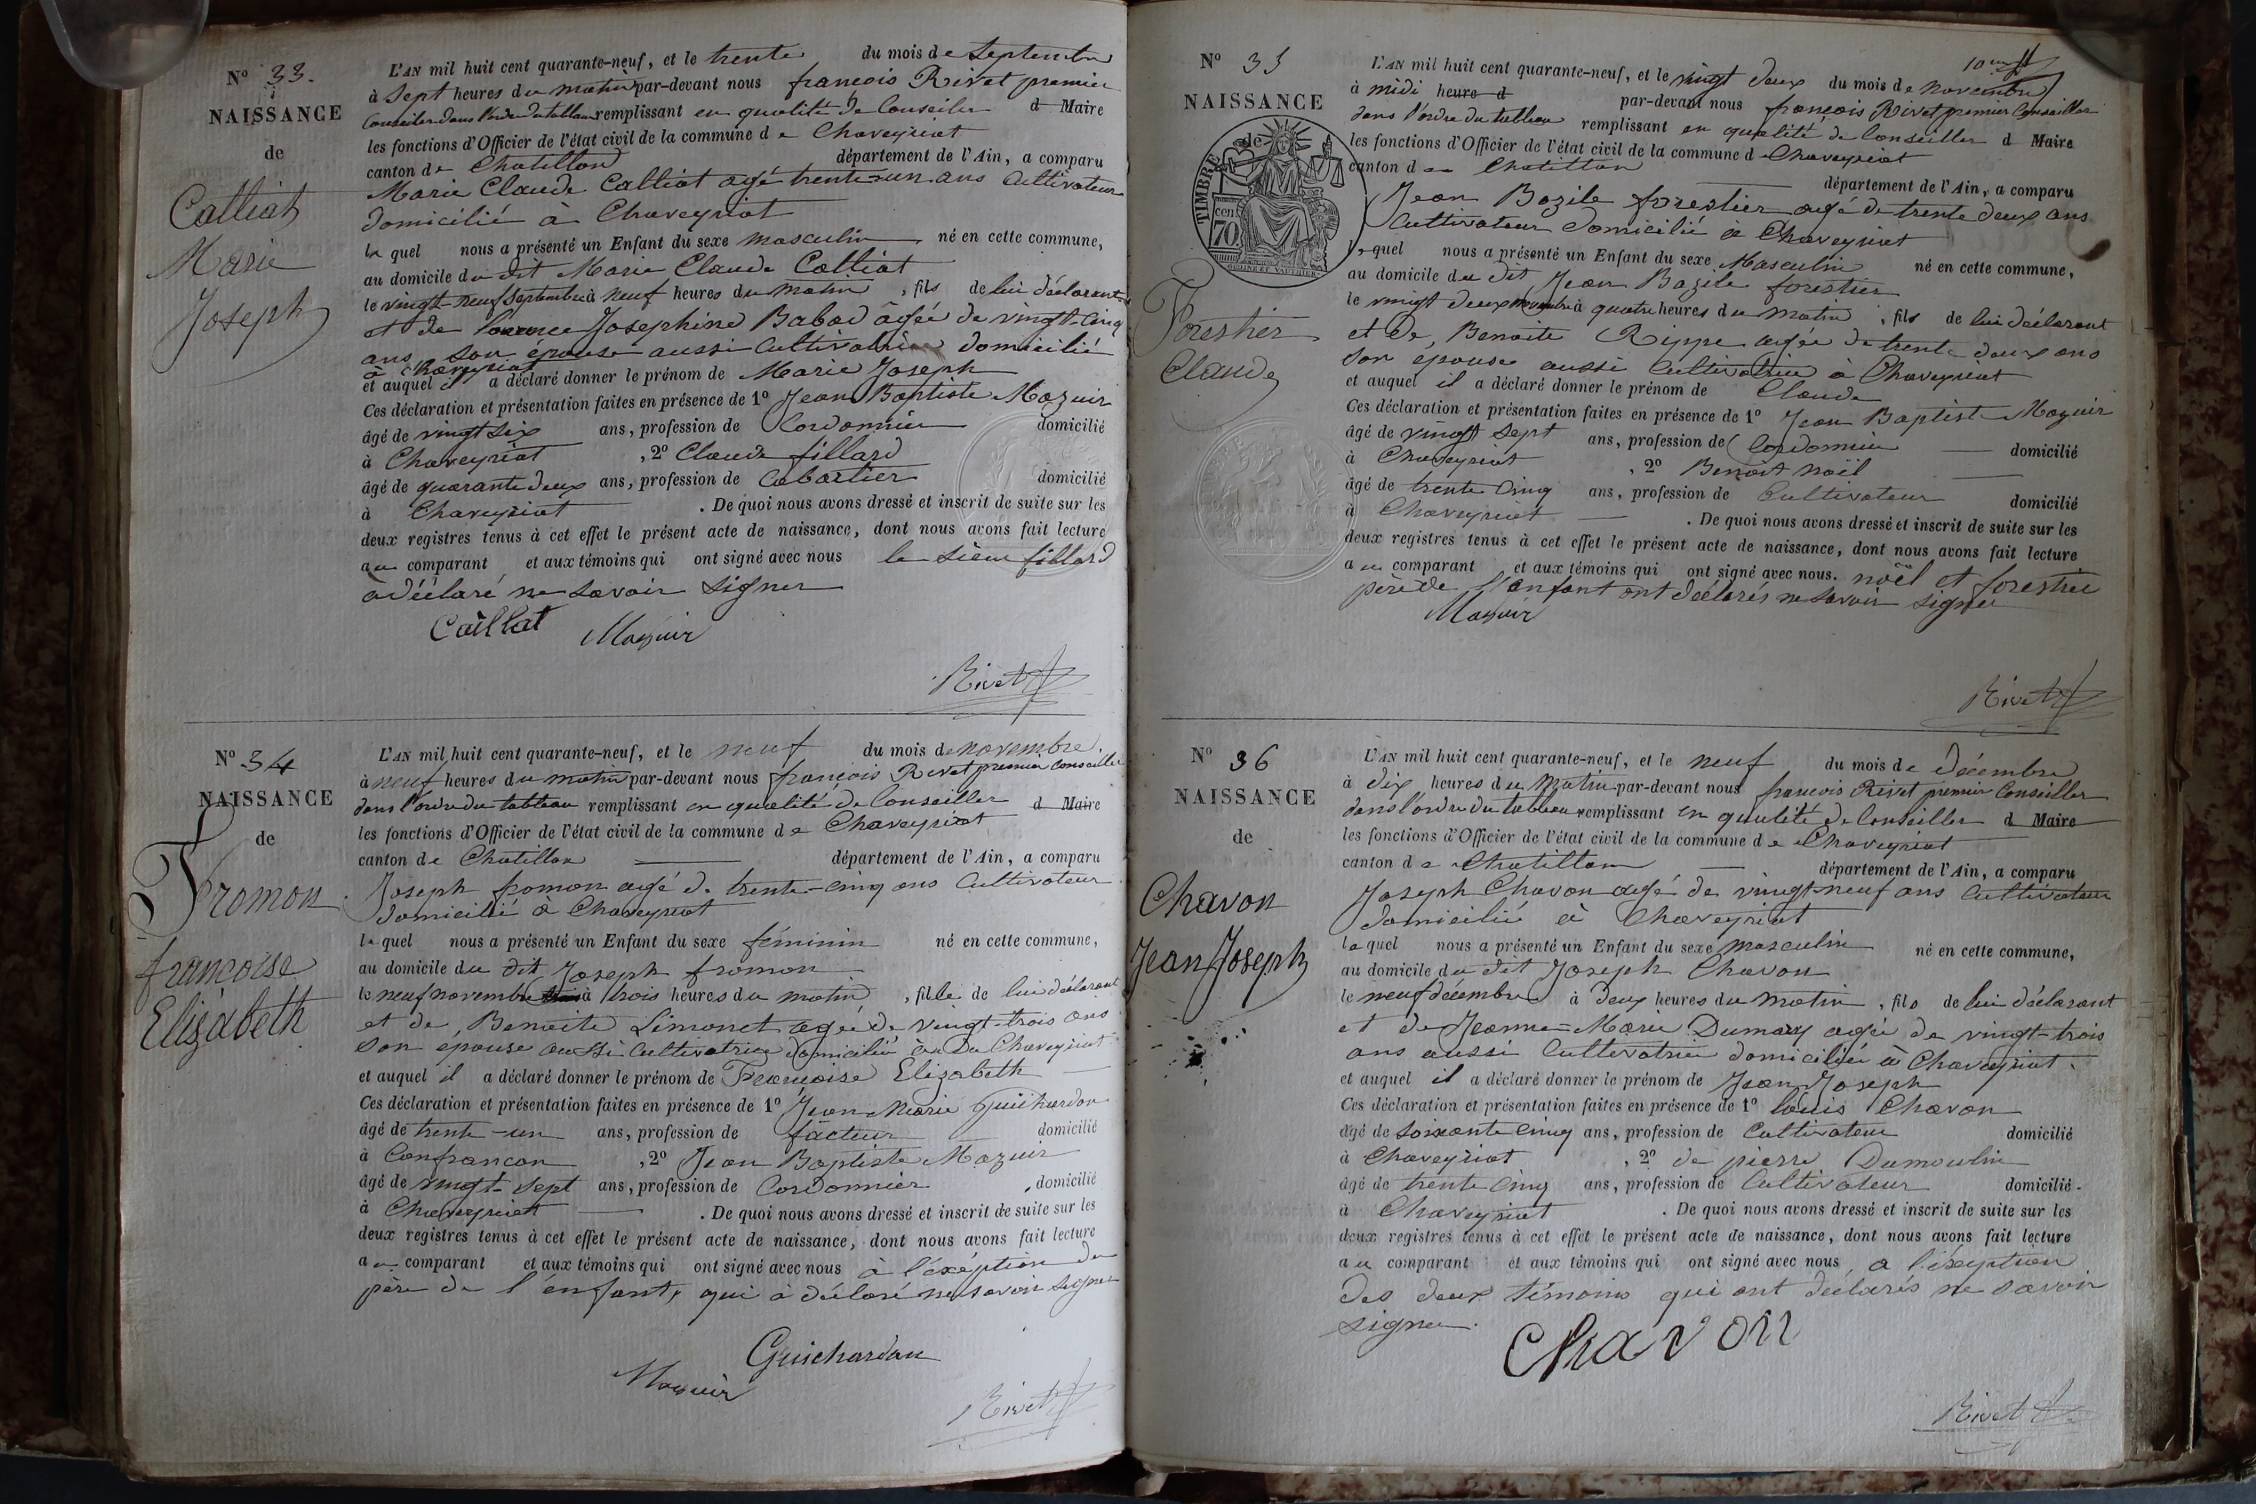 N° 33.
NAISSANCE
de
Calliat
Marie
Joseph
L'AN mil huit cent quarante-neuf, et le trente du mois de Septembre
à Sept heures du matin par-devant nous francois Rivet premier
Conseiler dans l'ordre du tableau remplissant en qualité de Conseiler d Maire
les fonctions d'Officier de l'état civil de la commune de Chaveyriat
canton de Chatillon département de l'Ain, a comparu
Marie Claude Calliat agé trente-un ans Cultivateur
domicilié à Chaveyriat
le quel nous a présenté un Enfant du sexe masculin né en cette commune,
au domicile du dit Marie Claude Calliat
le vingt neuf Septembre à neuf heures du matin, fils de lui déclarant
et de Josephine Babad âgée de vingt-cinq
ans son épouse aussi Cultivatrice domicilié
à Chaveyriat
et auquel il a déclaré donner le prénom de Marie Joseph
Ces déclaration et présentation faites en présence de 1° Jean Baptiste Mazuir
âgé de vingt six ans, profession de Cordonnier domicilié
à Chaveyriat, 2° Claude fillard
âgé de quarante deux ans, profession de Cabartier domicilié
à Chaveyriat. De quoi nous avons dressé et inscrit de suite sur les
deux registres tenus à cet effet le présent acte de naissance, dont nous avons fait lecture
au comparant et aux témoins qui ont signé avec nous le sieur fillard
a déclaré ne savoir signer
Caillat Mazuir
Rivet
N° 34
NAISSANCE
de
Fromon
francoise
Elisabeth
L'AN mil huit cent quarante-neuf, et le neuf du mois de novembre
à neuf heures du matin par-devant nous françois Rivet premier Conseiller
dans l'ordre du tableau remplissant en qualité de Conseiller d Maire
les fonctions d'Officier de l'état civil de la commune de Chaveyriat
canton de Chatillon département de l'Ain, a comparu
Joseph fromon agé de trente-cinq ans Cultivateur
domicilié à Chaveyriat
le quel nous a présenté un Enfant du sexe féminin né en cette commune,
au domicile du dit Joseph fromon
le neuf novembre à trois heures du matin, fille de lui déclarant
et de, Benoite Limonet agée de vingt-trois ans
son epouse aussi Cultivatrice domicilié Chaveyriat
et auquel il a déclaré donner le prénom de Françoise Elizabeth
Ces déclaration et présentation faites en présence de 1° Jean Marie Guichardon
âgé de trente-un ans, profession de facteur domicilié
à Confrancon, 2° Jean Baptiste Mazuir
âgé de vingt-sept ans, profession de Cordonnier, domicilié
à Chaveyriat. De quoi nous avons dressé et inscrit de suite sur les
deux registres tenus à cet effet le présent acte de naissance, dont nous avons fait lecture
au comparant et aux témoins qui ont signé avec nous à l'éxéption du
père de l'enfant, qui à déclaré ne savoir signer
Guichardon
Mazuir
Rivet
N° 35
NAISSANCE
de
TIMBRE
70. cen
Forestier
Claude
L'AN mil huit cent quarante-neuf, et le vingt deux du mois de novembre
à midi heure d par-devant nous françois Rivet premier Conseiller
dans l'ordre du tableau remplissant en qualité de Conseiller d Maire
les fonctions d'Officier de l'état civil de la commune d Chaveyriat
canton de Chatillon département de l'Ain, a comparu
Jean Bazile forestier agé de trente deux ans
Cultivateur domicilié à Chaveyriat
le quel nous a présenté un Enfant du sexe Masculin né en cette commune,
au domicile du dit Jean Bazile forestier
le vingt deux novembre à quatre heures du matin, fils de lui déclarant
et de, Benoite Rippe agée de trente deux ans
son epouse aussi Cultivatrice à Chaveyriat
et auquel il a déclaré donner le prénom de Claude
Ces déclaration et présentation faites en présence de 1° Jean Baptiste Mazuir
âgé de vingt sept ans, profession de Cordonnier domicilié
à Chaveyriat, 2° Benoit Noël
âgé de trente cinq ans, profession de Cultivateur domicilié
à Chaveyriat. De quoi nous avons dressé et inscrit de suite sur les
deux registres tenus à cet effet le présent acte de naissance, dont nous avons fait lecture
au comparant et aux témoins qui ont signé avec nous. noël et forestier
père de l'enfant ont déclarés ne savoir signer
Mazuir
Rivet
N° 36
NAISSANCE
de
Chavon
Jean Joseph
L'AN mil huit cent quarante-neuf, et le neuf du mois de décembre
à dix heures du Matin par-devant nous francois Rivet premier Conseiller
dans l'ordre du tableau remplissant en qualité de Conseiller d Maire
les fonctions d'Officier de l'état civil de la commune de Chaveyriat
canton de Chatillon département de l'Ain, a comparu
Joseph Chavon agé de vingt-neuf ans Cultivateur
domicilié à Chaveyriat
le quel nous a présenté un Enfant du sexe masculin né en cette commune,
au domicile du dit Joseph Chavon
le neuf décembre à deux heures du matin, fils de lui déclarant
et de Jeanne-Marie Dumary agée de vingt-trois
ans aussi Cultivatrice domiciliée à Chaveyriat.
et auquel il a déclaré donner le prénom de Jean Joseph
Ces déclaration et présentation faites en présence de 1° Louis Chavon
âgé de soixante cinq ans, profession de Cultivateur domicilié
à Chaveyriat, 2° de pierre Dumoulin
âgé de trente cinq ans, profession de Cultivateur domicilié.
à Chaveyriat. De quoi nous avons dressé et inscrit de suite sur les
deux registres tenus à cet effet le présent acte de naissance, dont nous avons fait lecture
au comparant et aux témoins qui ont signé avec nous, a l'éxeption
des deux témoins qui ont déclarés ne savoir
signer.
Chavon
Rivet